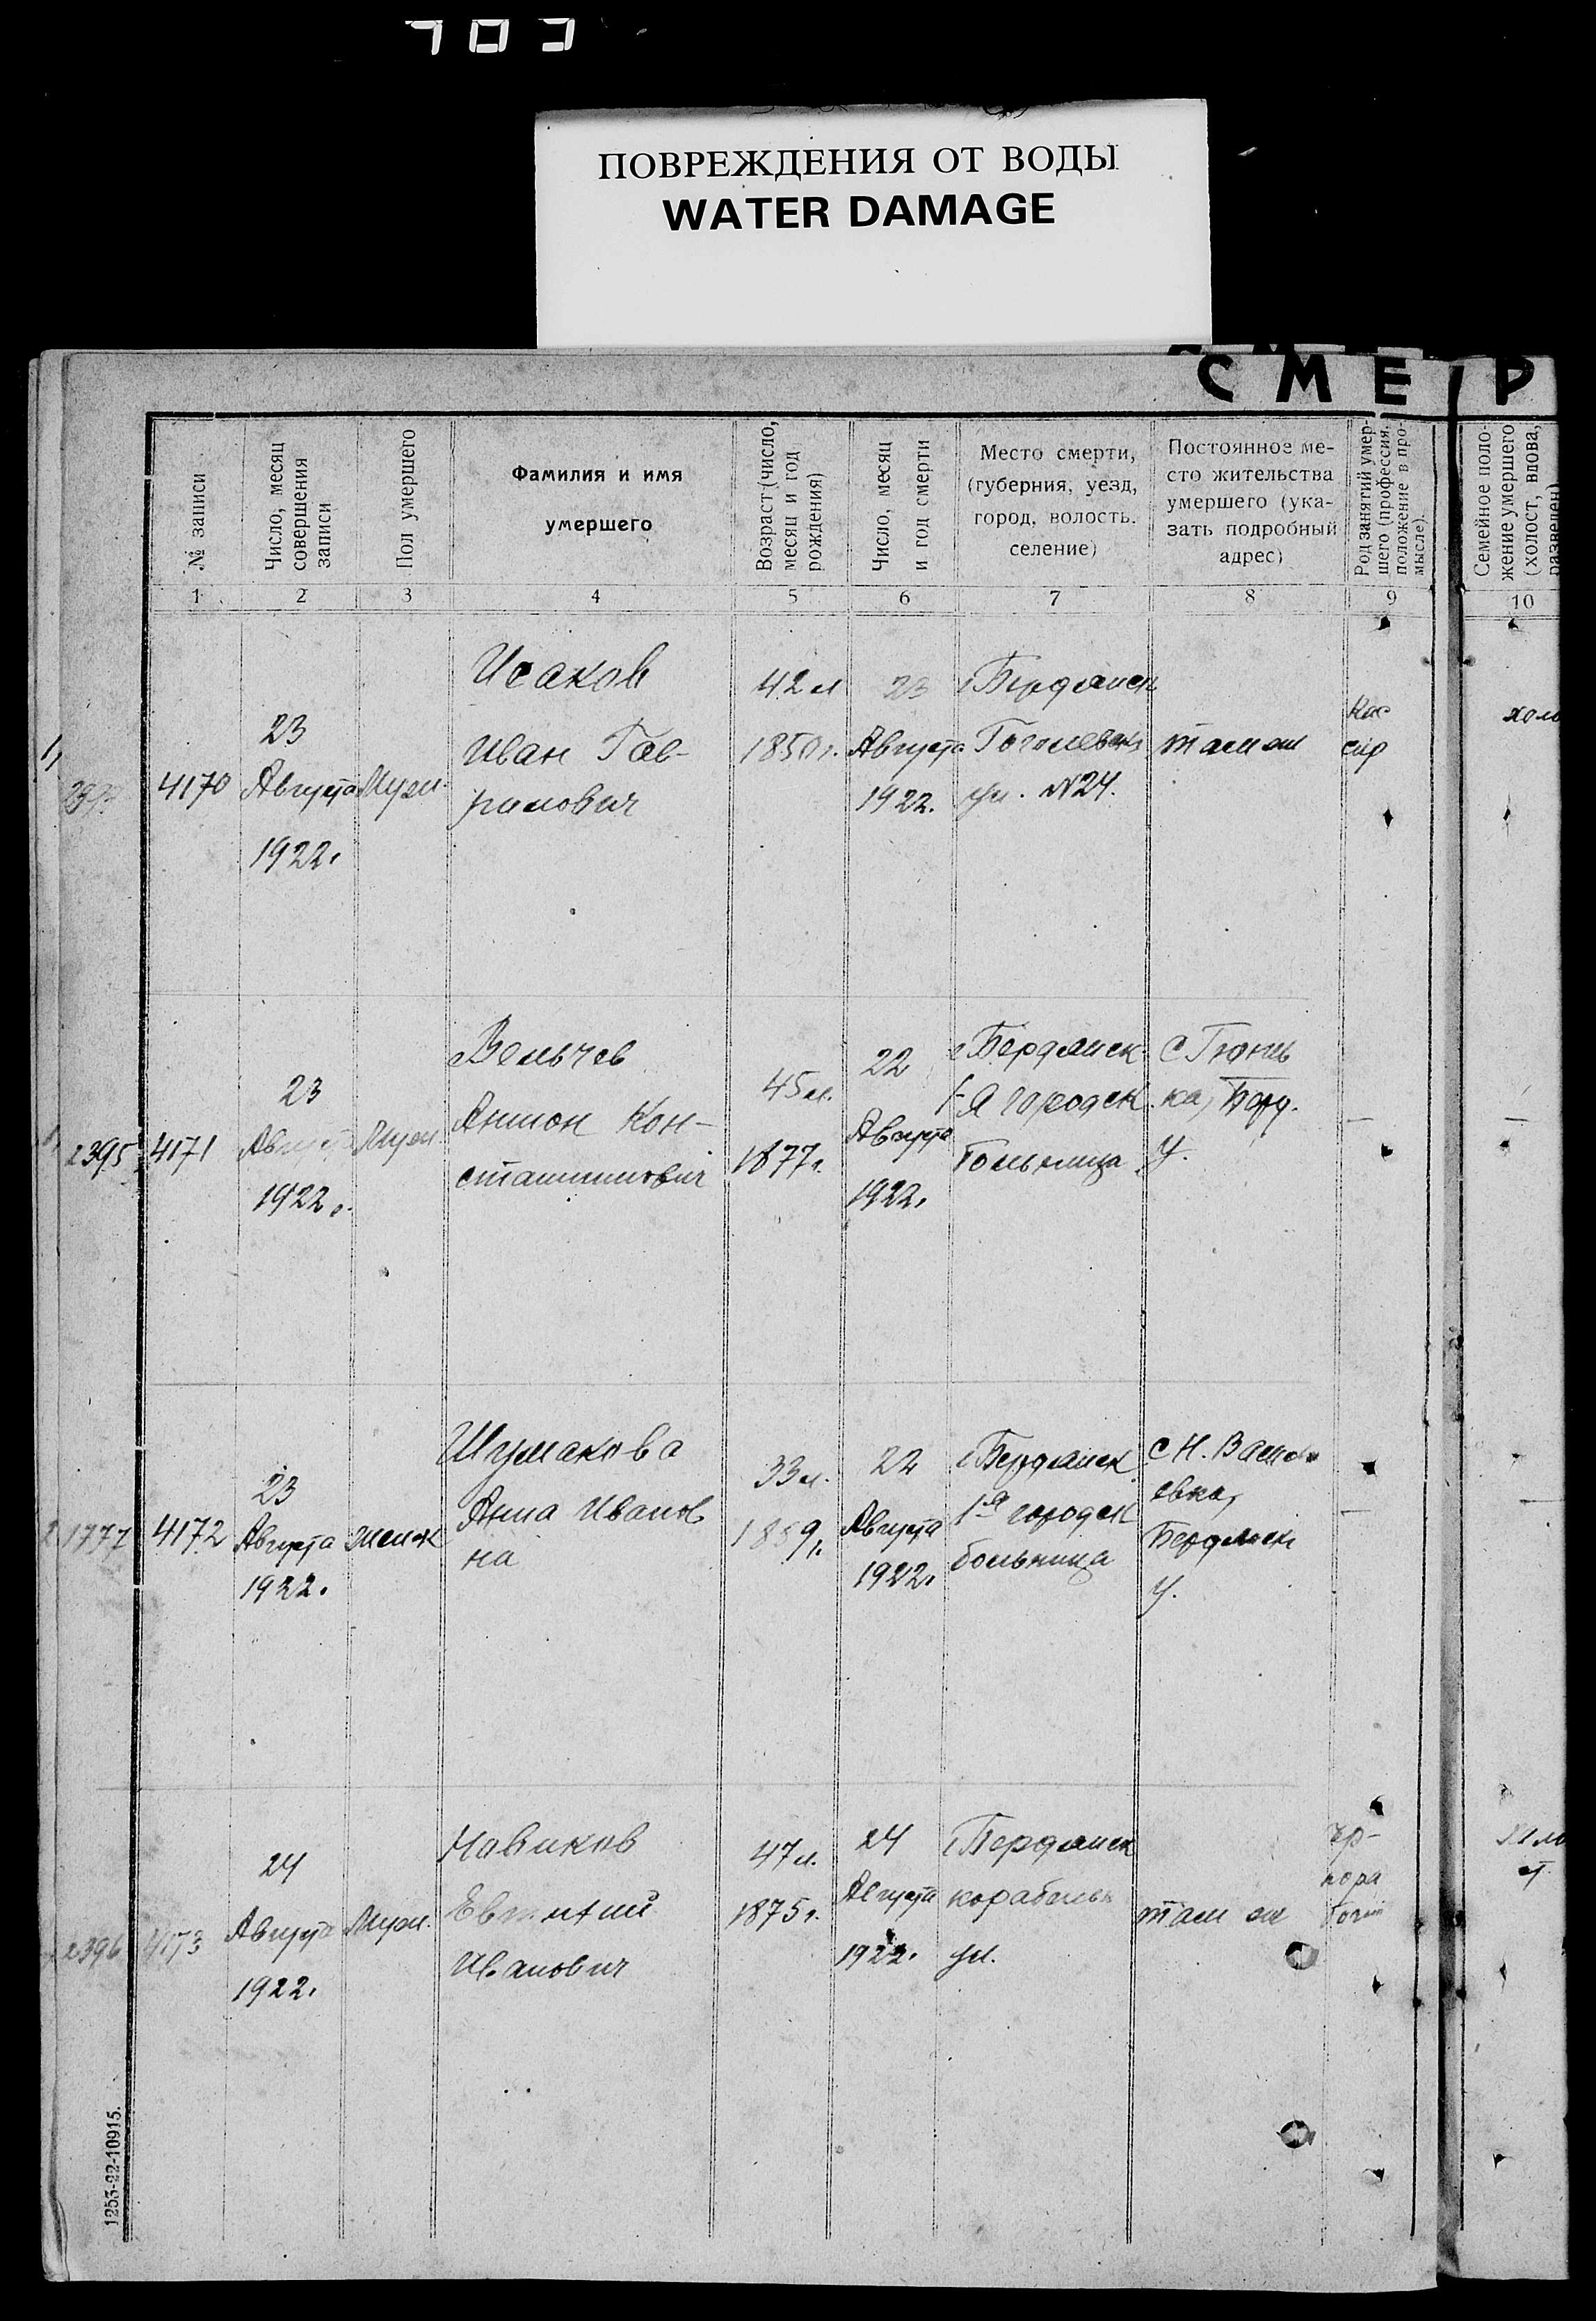 ПОВРЕЖДЕНИЯ ОТ ВОДЫ
WATER DAMAGE
СМЕР
№ записи
Число, месяц
совершения
записи
Пол умершего
Фамилия и имя
умершего
Возраст (число,
месяц и год
рождения)
Число, месяц
и год смерти
Место смерти,
(губерния, уезд,
город, волость.
селение)
Постоянное ме-
сто жительства
умершего (ука-
зать подробный
адрес)
Род занятий умер-
шего (профессия,
положение в про-
мысле).
Семейное поло-
жение умершего
(холост, вдова,
разведен)
1 2 3 4 5 6 7 8 9 10
4170
23
Августа
1922г
Муж.
Исаков
Иван Гав-
рилович
42 л
1850г.
23
Августа
1922.
г Бердянск
Гоголевск
ул. №24.
там же
Кас
сир
холо
2395
4171
23
Августа
1922г.
Муж
Вельчев
Антон Кон-
стантинович
45 л.
1877г.
22
Августа
1922г
г Бердянск
1-я городск
больница
с Гюнь
ка, Берд.
у.
1777
4172
23
Августа
1922.
женск
Шумакова
Анна Иванов
на
33 л.
1889г.
22
Августа
1922.
г Бердянск
1я городск
больница
с Н. Васил
евка,
Бердянск
у.
2396
4173
24
Августа
1922.
Муж.
Новиков
Ивванович
47 л.
1875г.
24
Августа
1922.
г Бердянск
корабельн
ул.
там же
Чр-
нора
бочий
1253-22-10915.